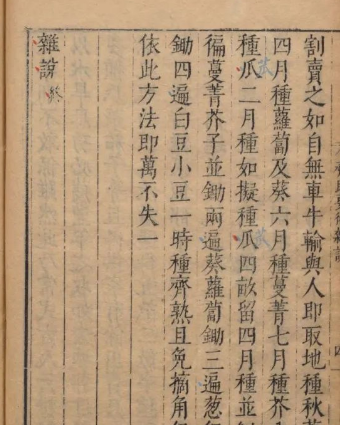 割賣之如自無車牛輸與人即取地種秋
四月種蘿蔔及葵六月種蔓菁七月種芥
種瓜二月種如擬種瓜四畝留四月種並
徧蔓菁芥子並鋤兩遍葵蘿蔔鋤三遍葱
鋤四遍白豆小豆一時種齊熟且免摘角
依此方法即萬不失一
雜說